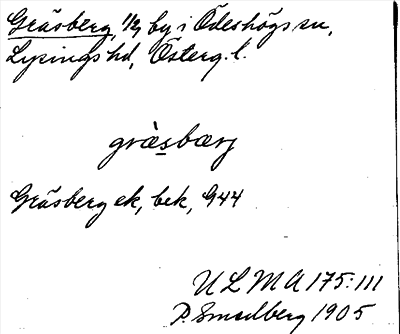 Gräsberg, 1/2, by i Ödeshögs sn,
Lysings hd, Österg. l.
gràsbærj
Gräsberg ek, bek, G44
ULMA 175:111
P. Smedberg 1905